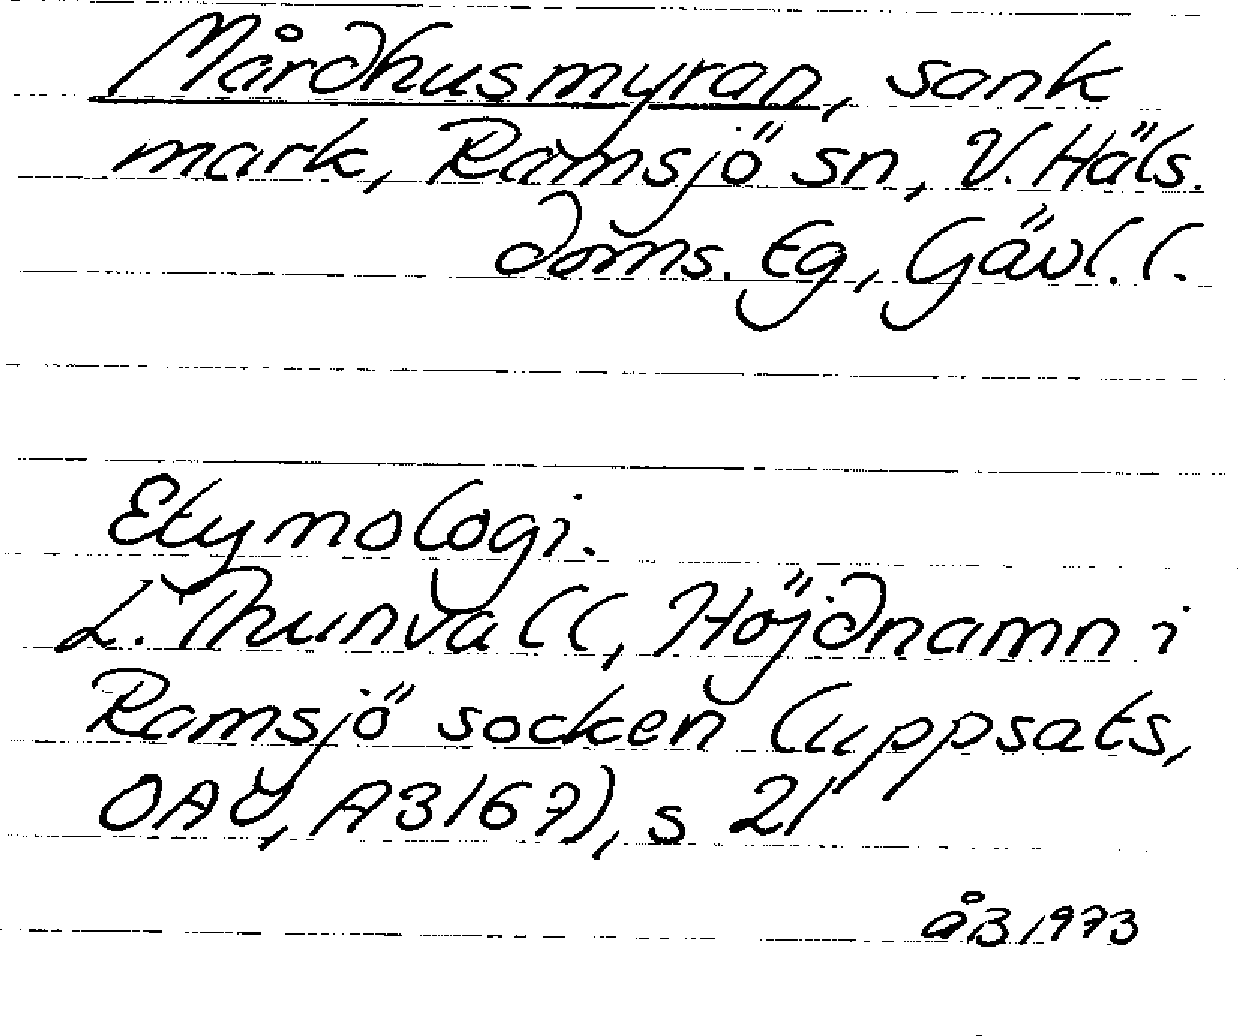 Mårdhusmyran, sank
mark, Ramsjö sn, V. Häls.
doms. tg, Gävl. l.
Etymologi.
L. Thunvall, Höjdnamn i
Ramsjö socken (uppsats,
OAU, A3167), s 21
åB 1973